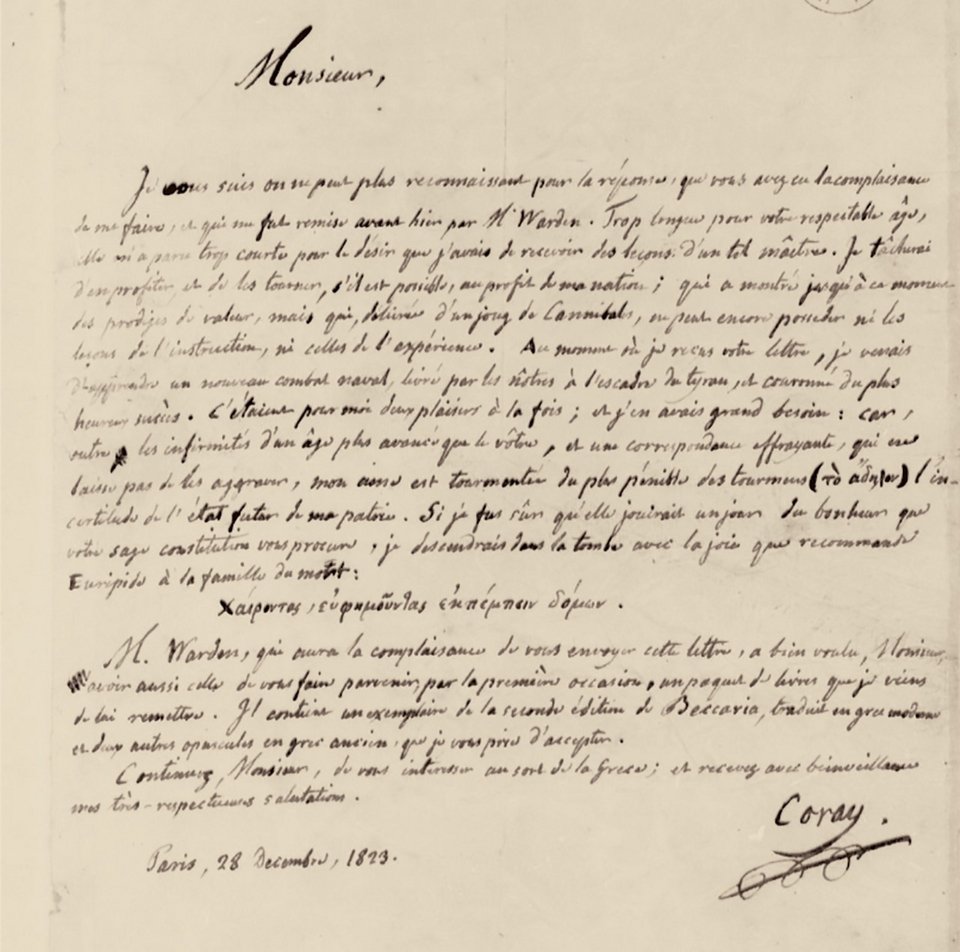 Monsieur,
Je vous suis on ne peut plus reconnaissant pour la réponse, que vous avez eu la complaisance
de me faire, et qui me fut remise avant hier par Mr Warden. Trop longue pour votre respectable âge,
elle m'a paru trop courte pour le désir que j'avais de recevoir des leçons d'un tel maître. Je tâcherai
d'en profiter, et de les tourner, s'il est possible, au profit de ma nation; qui a montré jusqu'à ce moment
des prodiges de valeur, mais qui, délivrée d'un joug de Cannibales, ne peut encore posseder ni les
leçons de l'instruction, ni celles de l'expérience. Au moment où je reçus votre lettre, je venais
d'apprendre un nouveau combat naval, livré par les nôtres à l'escadre du tyran, et couronné du plus
heureux succès. C'étaient pour moi deux plaisirs à la fois; et j'en avais grand besoin: car,
outre les infirmités d'un âge plus avancé que le vôtre, et une correspondance effrayante, qui ne
laisse pas de les aggraver, mon ame est tourmentée du plus pénible des tourmens (τὸ ἄδηλον) l'in-
certitude de l'état futur de ma patrie. Si je fus sûr qu'elle jouirait un jour du bonheur que
votre sage constitution vous procure, je descendrais dans la tombe avec la joie que recommande
Euripide à la famille du mort:
Χαίροντας, εὐφημοῦντας ἐκπέμπειν δόμων.
M. Warden, qui aura la complaisance de vous envoyer cette lettre, a bien voulu, Monsieur,
avoir aussi celle de vous faire parvenir, par la première occasion, un paquet de livres que je viens
de lui remettre. Il contient un exemplaire de la seconde édition de Beccaria, traduit en grec moderne
et deux autres opuscules en grec ancien, que je vous prie d'accepter.
Continuez, Monsieur, de vous intéresser au sort de la Grece; et recevez avec bienveillance
mes très-respectueuses salutations.
Coray.
Paris, 28 Decembre, 1823.